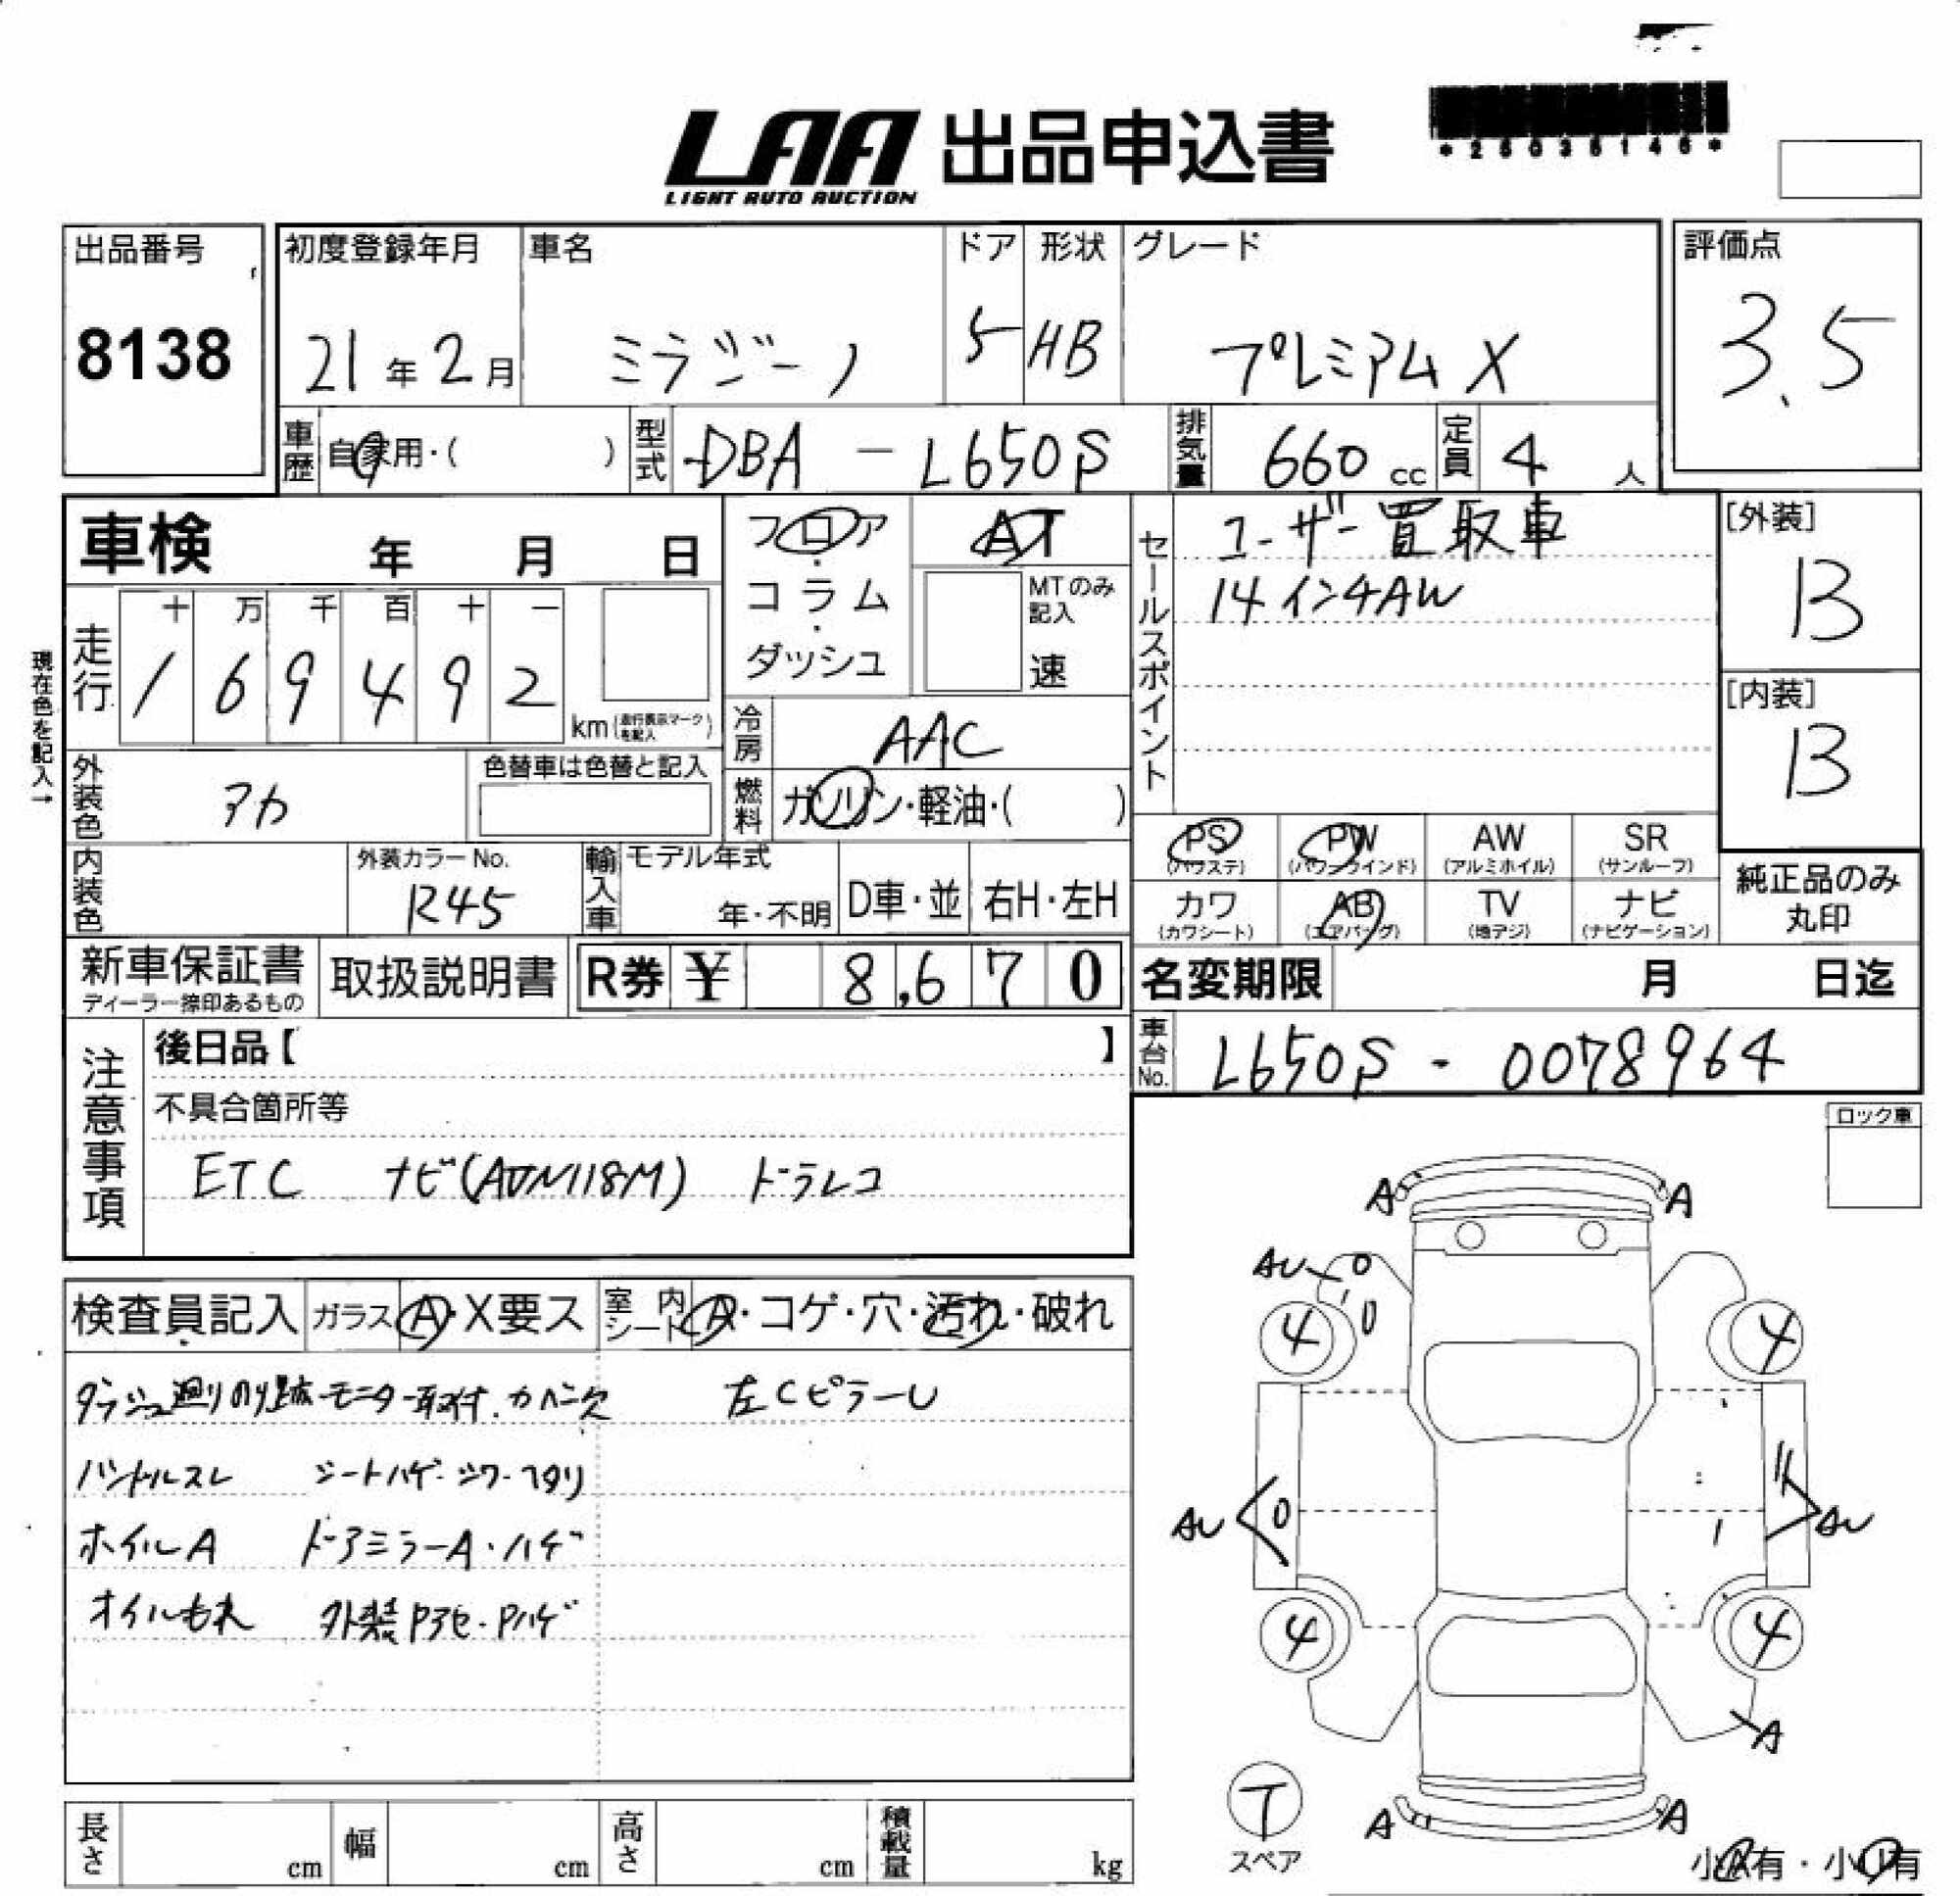 LAA 出品申込書
LIGHT AUTO AUCTION
出品番号
8138
初度登録年月
21年2月
車名
ミラジーノ
ドア
5
形状
HB
グレード
プレミアムX
評価点
3.5
車歴
自家用・( )
型式
DBA - L650S
排気量
660 cc
定員
4 人
車検 年 月 日
フロア・コラム・ダッシュ
AT
MTのみ記入
速
セールスポイント
ユーザー買取車
14インチAW
[外装]
B
[内装]
B
現在色を記入→
走行
十 万 千 百 十 一
1 6 9 4 9 2
km(走行表示マークを記入)
冷房
AAC
燃料
ガソリン・軽油・( )
外装色
アカ
色替車は色替と記入
内装色
外装カラーNo.
R45
輸入車
モデル年式
年・不明
D車・並
右H・左H
PS (パワステ)
PW (パワーウインド)
AW (アルミホイル)
SR (サンルーフ)
カワ (カワシート)
AB (エアバッグ)
TV (地デジ)
ナビ (ナビゲーション)
純正品のみ丸印
新車保証書
ディーラー捺印あるもの
取扱説明書
R券 ¥ 8,670
名変期限 月 日迄
車台No.
L650S - 0078964
注意事項
後日品【 】
不具合箇所等
ETC ナビ(ADN118M) ドラレコ
ロック車
検査員記入
ガラス A・X要ス
室内シート A・コゲ・穴・汚れ・破れ
ダッシュ廻りのり跡・モニター取付.カバー欠 左CピラーU
ハンドルスレ シートハゲ・シワ・ヘタリ
ホイルA ドアミラーA・ハゲ
オイルもれ 外装Pアセ・Pハゲ
A A
AU 0
4 0 4
AU 0 AU
4 4
A
A A
T
スペア
小A有・小U有
長さ cm
幅 cm
高さ cm
積載量 kg